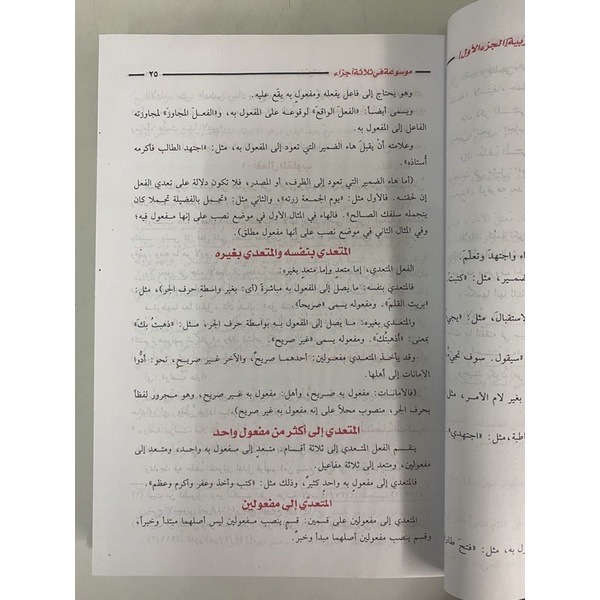 موسوعة في ثلاثة أجزاء
٢٥
وهو يحتاج إلى فاعل يفعله ومفعولٍ به يقع عليه.
ويسمى أيضاً: «الفعلَ الواقعَ» لوقوعه على المفعول به، و«الفعلَ المجاوزَ» لمجاوزته
الفاعل إلى المفعول به.
وعلامته أنْ يقبلَ هاء الضمير التي تعود إلى المفعول به، مثل: «اجتهد الطالب فأكرمه
أستاذه».
(أما هاء الضمير التي تعود إلى الظرف، أو المصدر، فلا تكون دلالة على تعدي الفعل
إن لحقته. فالأول مثل: «يوم الجمعة زرته»، والثاني مثل: «تجمل بالفضيلة تجملا كان
يتجمله سلفك الصالح». فالهاء في المثال الأول في موضع نصب على إنها مفعول فيه؛
وفي المثال الثاني في موضع نصب على إنها مفعول مطلق).
المتعدي بنفسه والمتعدي بغيره
الفعل المتعدي، إما متعدٍ وإما متعدٍ بغيره:
فالمتعدي بنفسه: ما يصل إلى المفعول به مباشرةً (أى: بغير واسطةِ حرف الجر)، مثل:
«بريت القلمَ». ومفعوله يسمى «صريحاً».
والمتعدي بغيره: ما يصل إلى المفعول به بواسطة حرف الجر، مثل: «ذهبتُ بكَ»
بمعنى: «أذهبتُكَ». ومفعوله يسمى «غير صريح».
وقد يأخذ المتعدي مفعولين: أحدهما صريحٌ، والآخر غير صريحٍ، نحو: أدُّوا
الأمانات إلى أهلها.
(فالأمانات: مفعول به صريح، وأهل: مفعول به غير صريح، وهو مجرور لفظاً
بحرف الجر، منصوب محلاً على إنه مفعول به غير صريح).
المتعدي إلى أكثر من مفعول واحد
ينقسم الفعل المتعدي إلى ثلاثة أقسام، متعدٍ إلى مفعول به واحد، ومتعد إلى
مفعولين، ومتعد إلى ثلاثة مفاعيل.
فالمتعدي إلى مفعولٍ به واحدٍ كثيرٌ، وذلك مثل: «كتب وأخذ وغفر وأكرم وعظم».
المتعدّي إلى مفعولين
المتعدي إلى مفعولين على قسمين: قسمٍ ينصب مفعولين ليس أصلهما مبتدأ وخبراً،
وقسم ينصب مفعولين أصلهما مبتدأ وخبرٌ.
ربية [الجزء الأول]
اء واجتهدَ وتعلّمَ.
ضمير، مثل: «كتبت
لاستقبالَ، مثل: «يجي
«سيقول. سوف نجيُ»
بغير لام الأمر، مثل
طبة، مثل: «اجتهدي»
ول به، مثل: «فتحَ طار